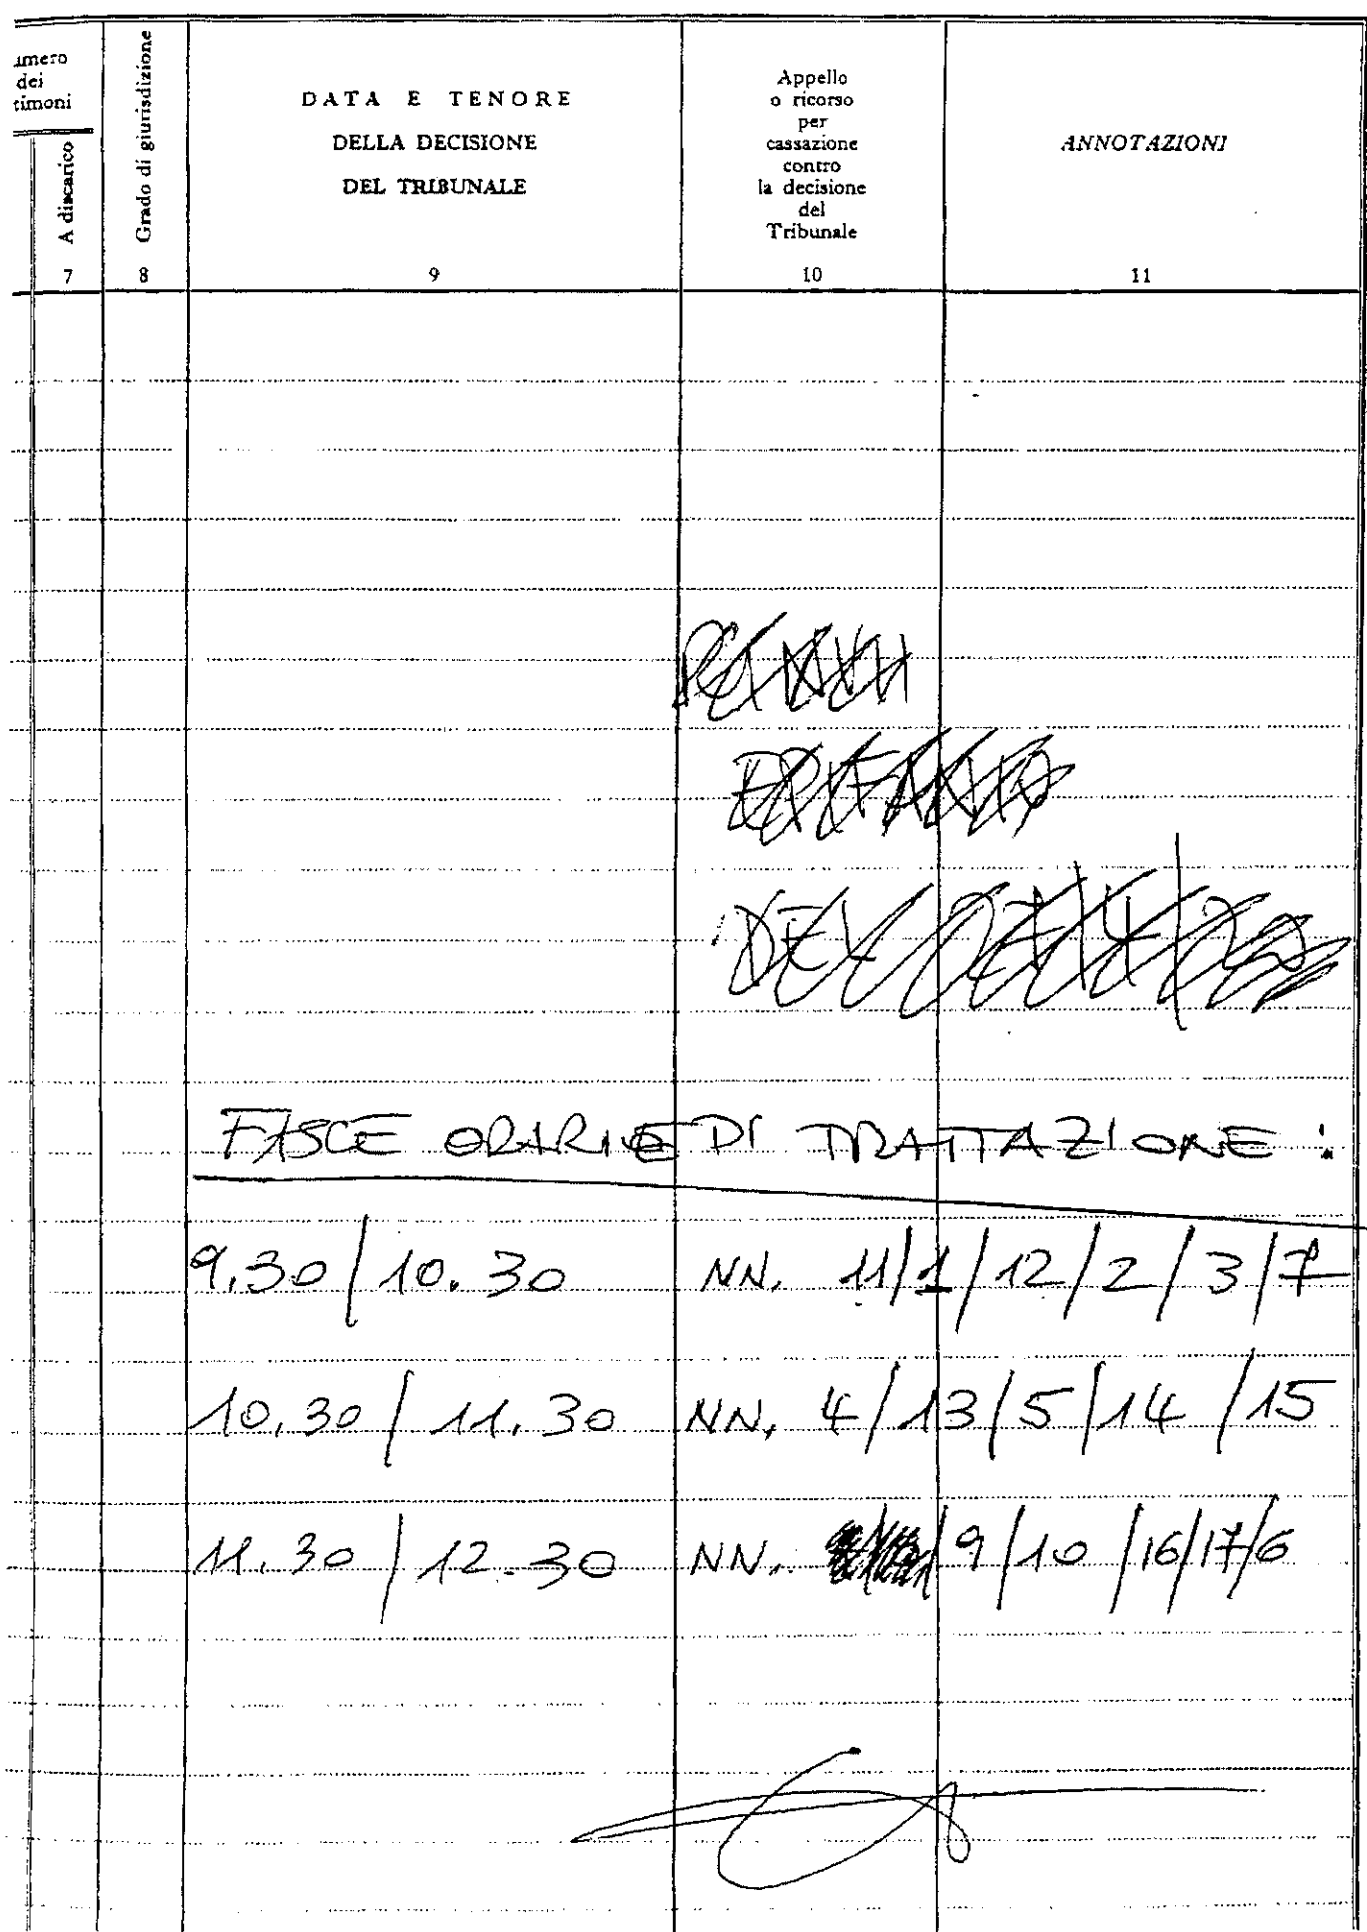 umero
dei
timoni
A discarico
7
Grado di giurisdizione
8
DATA E TENORE
DELLA DECISIONE
DEL TRIBUNALE
9
Appello
o ricorso
per
cassazione
contro
la decisione
del
Tribunale
10
ANNOTAZIONI
11
DEL
FASCE ORARIE DI TRATTAZIONE :
9.30 / 10.30 NN. 11/1/12/2/3/7
10.30 / 11.30 NN. 4/13/5/14/15
11.30 / 12.30 NN. /9/10/16/17/6